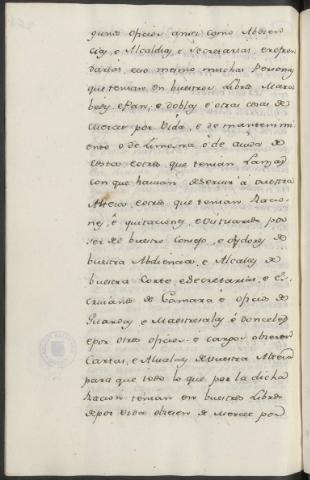 gunos oficios asi como Abdien
cias, e Alcaldias, e Secretarias, e
eso mesmo muchas Personas
que tenian en buestros Libros Mara
bedis, e Pan, e doblas, e otras cosas de
Merced por Vida, e de mantenimi
ento, o de Limosna, o de aiuda de
costa, e otros que tenian Lanzas
con que havian de servir a vuestra
Alteza, e otros que tenian Racio
nes, e quitaciones, e vistuarios por
ser de buestro Consejo, e Oydores de
buestra Abdiencia, e Alcaldes de
buestra Corte, e Secretarios, e Es
crivanos de Camara, e oficio de
Guardas, e Maestresalas, e donceles
e por otros oficios, e cargos obieron
Cartas, e Albalaes de vuestra Alteza
para que todo lo que por la dicha
Racion tenian en buestros Libros
de por vida obiesen de Merced por